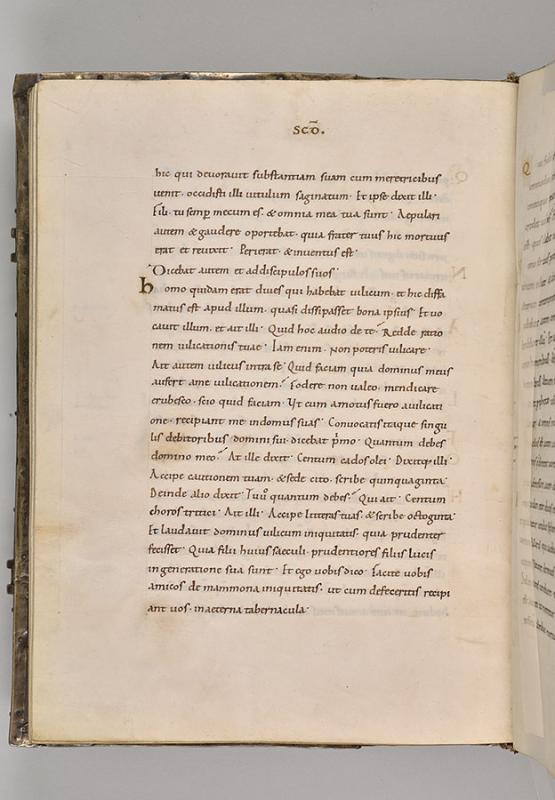 SCD̄.
hic qui devoravit substantiam suam cum meretricibus
venit · occidisti illi vitulum saginatum · Et ipse dixit illi ·
Fili · tu semp mecum es · & omnia mea tua sunt · Aepulari
autem & gaudere oportebat · quia frater tuus hic mortuus
erat et revixit · Perierat · & inventus est ·
Dicebat autem et ad discipulos suos ·
homo quidam erat dives qui habebat vilicum · et hic diffa
matus est apud illum · quasi dissipasset bona ipsius · Et vo
cavit illum · et ait illi · Quid hoc audio de te · Redde ratio
nem vilicationis tuae · Iam enim · non poteris vilicare ·
Ait autem vilicus intra se · Quid faciam quia dominus meus
aufert a me vilicationem · Fodere non valeo · mendicare
erubesco · scio quid faciam · Ut cum amotus fuero a vilicati
one · recipiant me in domus suas · Convocatis itaque singu
lis debitoribus domini sui · dicebat p̄mo · Quantum debes
domino meo · At ille dixit · Centum cados olei · Dixitq illi ·
Accipe cautionem tuam · & sede cito · scribe quinquaginta ·
Deinde alio dixit · Tu quantum debes · Qui ait · Centum
choros tritici · Ait illi · Accipe litteras tuas · & scribe octoginta ·
Et laudavit dominus vilicum iniquitatis · quia prudenter
fecisset · Quia filii huius saeculi · prudentiores filiis lucis
in generatione sua sunt · Et ego vobis dico · Facite vobis
amicos de mammona iniquitatis · ut cum defeceritis recipi
ant vos · in aeterna tabernacula ·